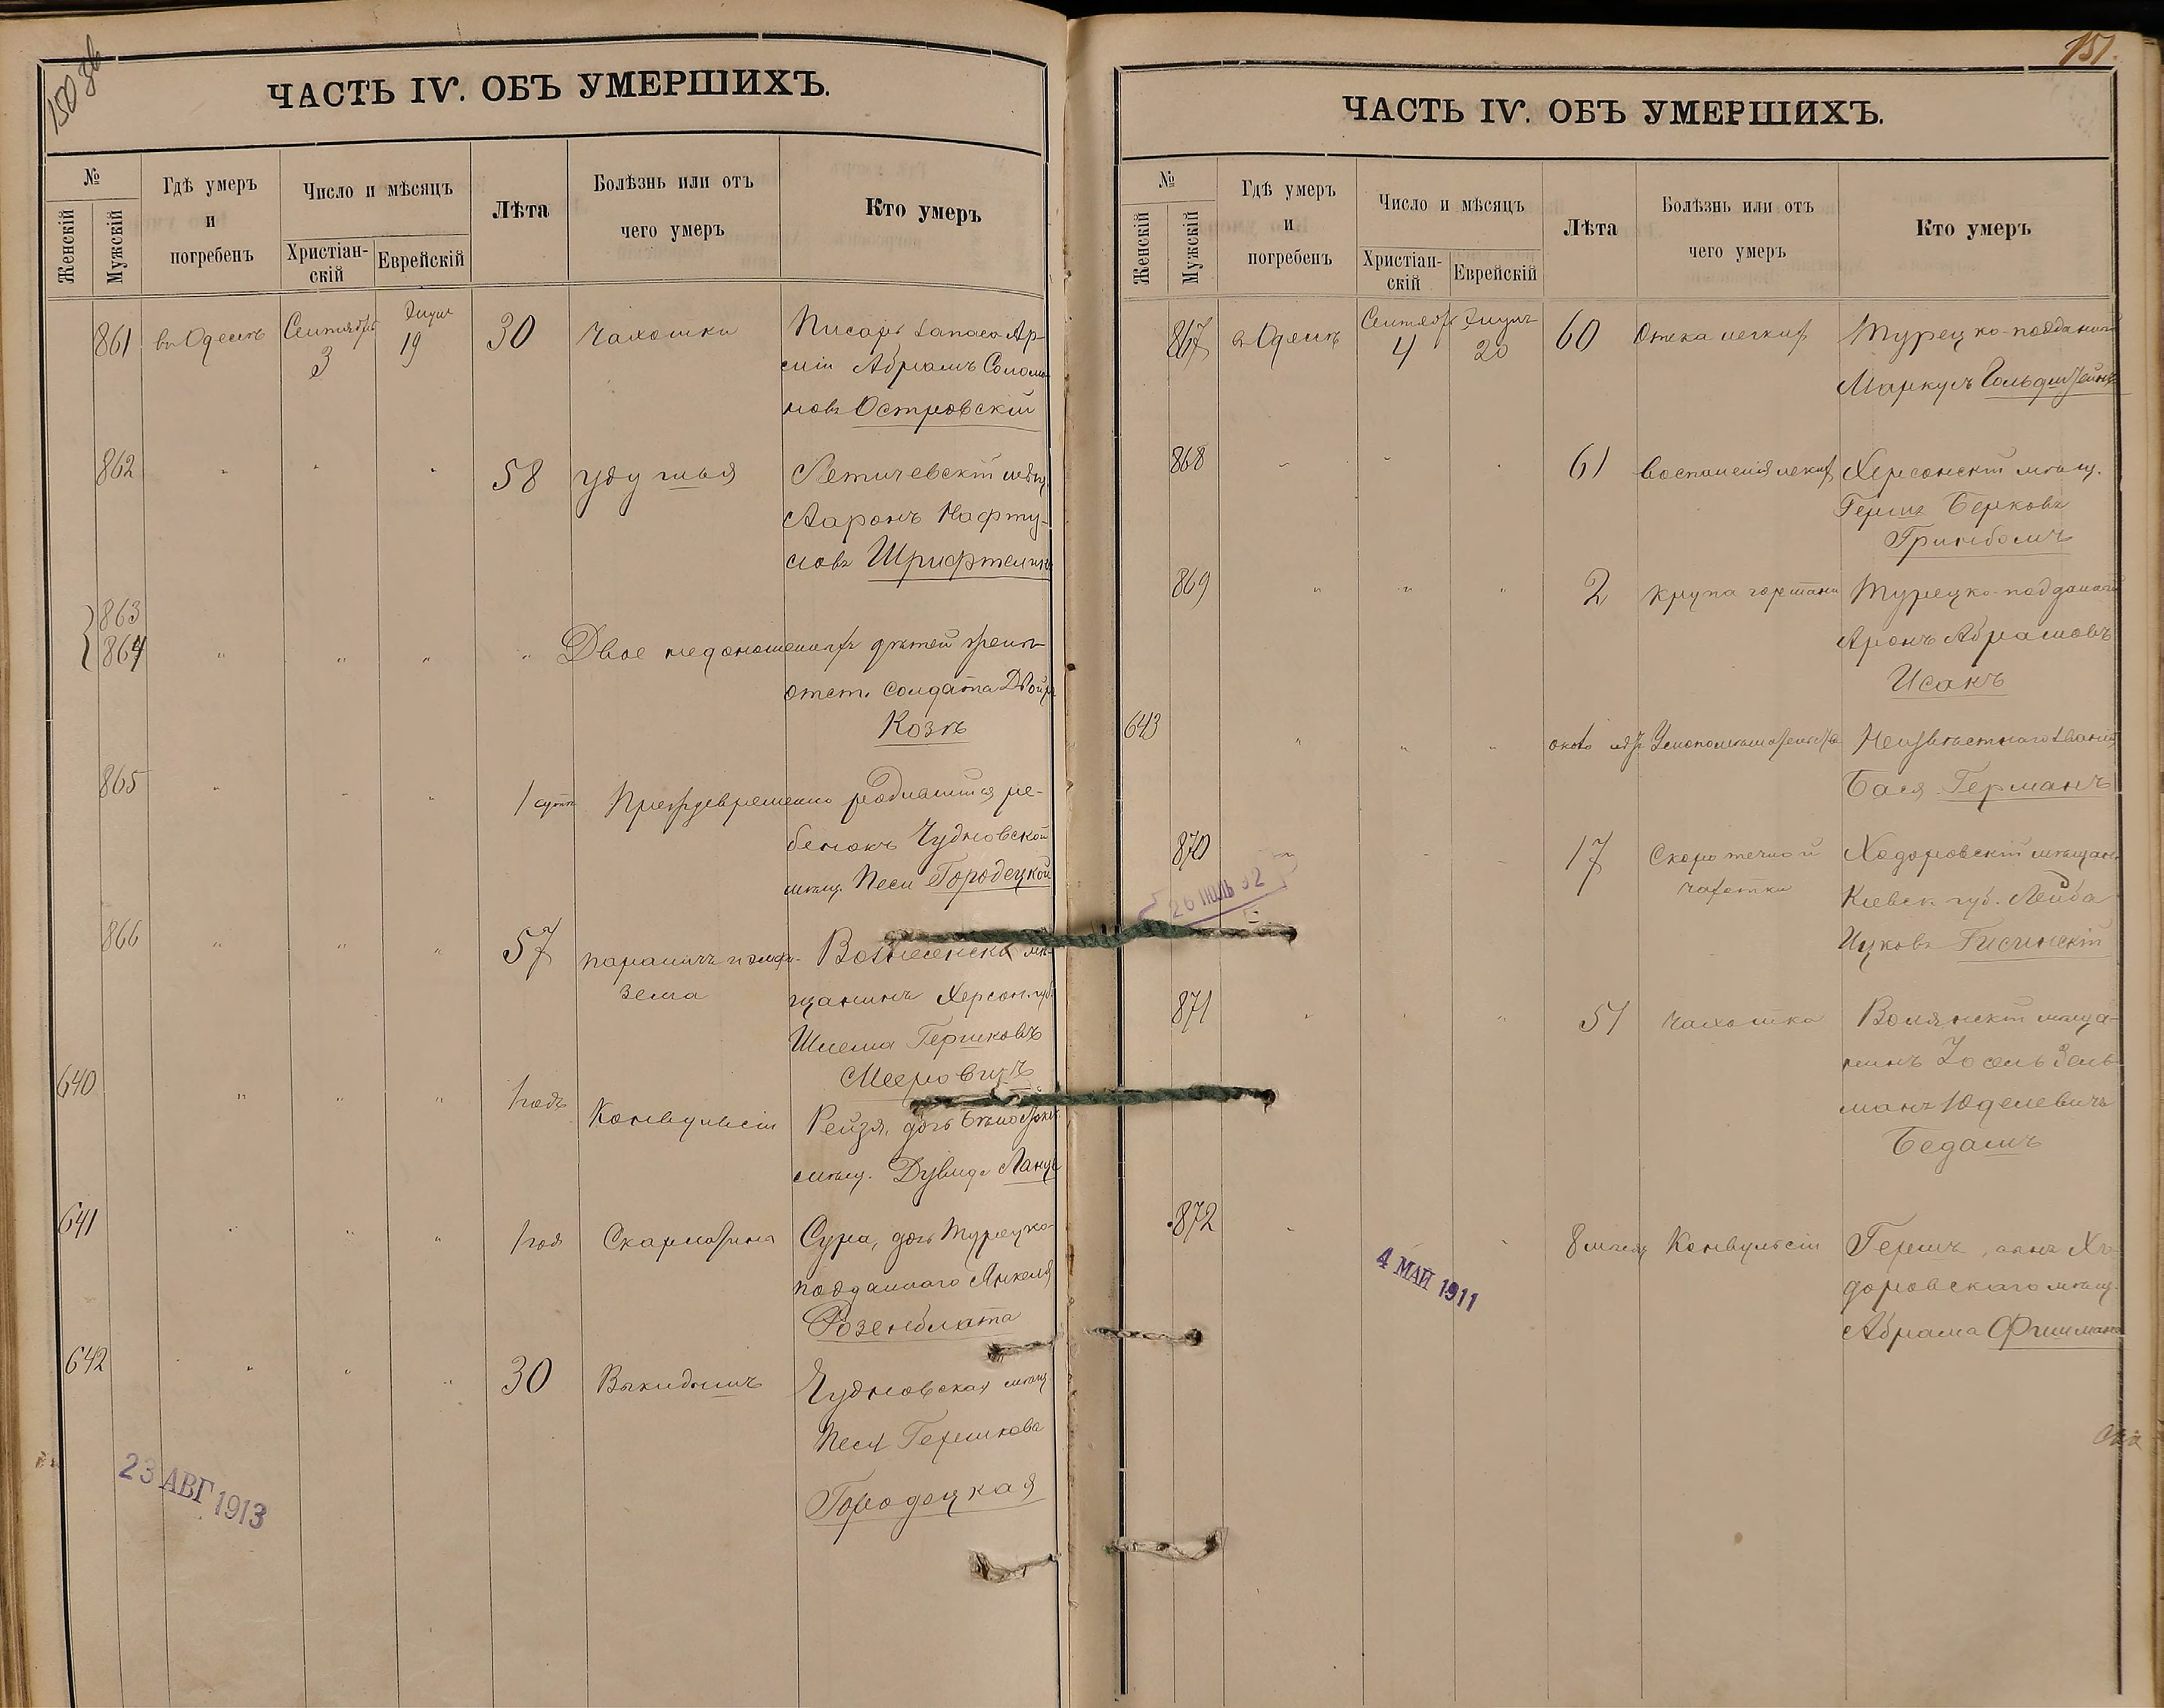 150 об
ЧАСТЬ IV. ОБЪ УМЕРШИХЪ.
№
Женскій
Мужскій
Гдѣ умеръ
и
погребенъ
Число и мѣсяцъ
Христіан-
скій
Еврейскій
Лѣта
Болѣзнь или отъ
чего умеръ
Кто умеръ
861 въ Одессѣ Сентября 3 Элулъ 19 30 Чахотки Писарь запаса Ар-
міи Абрамъ Соломо-
новъ Островскій
862 " " " 58 удушья Летичевскій мѣщ.
Ааронъ Нафту-
ловъ
863
864 " " " " Двое недоношенныхъ дѣтей
отст. солдата
Козъ
865 " " " 1 сутк. Преждевременно родившійся ре-
бенокъ Чудновской
мѣщ. Песи Городецкой
866 " " " 57 параличъ и эмфи-
зема
Вознесенскій мѣ-
щанинъ Херсон. губ.
Шлема Гершковъ
Мееровичъ
640 " " " 1 годъ Конвульсіи Рейзя, дочь
мѣщ. Дувида Ланцъ
641 " " " 1 годъ Скарлатина Сура, дочь Турецко-
подданнаго Янкеля
Розенблата
642 " " " 30 Выкидышъ Чудновская мѣщ.
Песя Гершкова
Городецкая
23 АВГ 1913
151.
ЧАСТЬ IV. ОБЪ УМЕРШИХЪ.
№
Женскій
Мужскій
Гдѣ умеръ
и
погребенъ
Число и мѣсяцъ
Христіан-
скій
Еврейскій
Лѣта
Болѣзнь или отъ
чего умеръ
Кто умеръ
867 въ Одессѣ Сентября 4 Элулъ 20 60 Отека легкихъ Турецко-подданный
Маркусъ Гольдштейнъ
868 " " " 61 Воспаленія легких Херсонскій мѣщ.
Гершъ Берковъ
Гринбомъ
869 " " " 2 Крупа гортани Турецко-подданный
Аронъ Абрамовъ
Исакъ
643 " " " около Неизвѣстнаго званія
Бася Германъ
870 17 Скоротечной
чахотки
Ходоровскій мѣщан.
Кіевск. губ. Лейба
Ицковъ Гисинскій
26 ИЮЛЬ 92
871 " " " 51 Чахотка мѣща-
нинъ Іосель Зель-
манъ Юделевичъ
Бедашъ
872 " " 8 мѣсяц Конвульсіи Гершъ, сынъ Хо-
доровскаго мѣщ.
Абрама Фишмана
4 МАЙ 1911